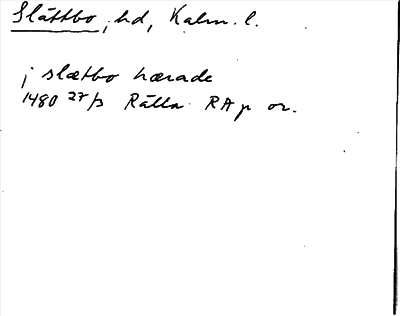 Slättbo, hd, Kalm. l.
j slætbo hærade
1480 27/3 Rälla RAp or.